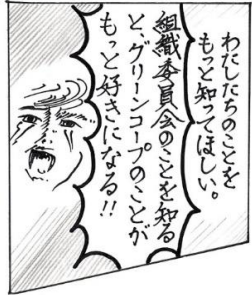 わたしたちのことを
もっと知ってほしい。
組織委員会のことを知る
と、グリーンコープのことが
もっと好きになる!!